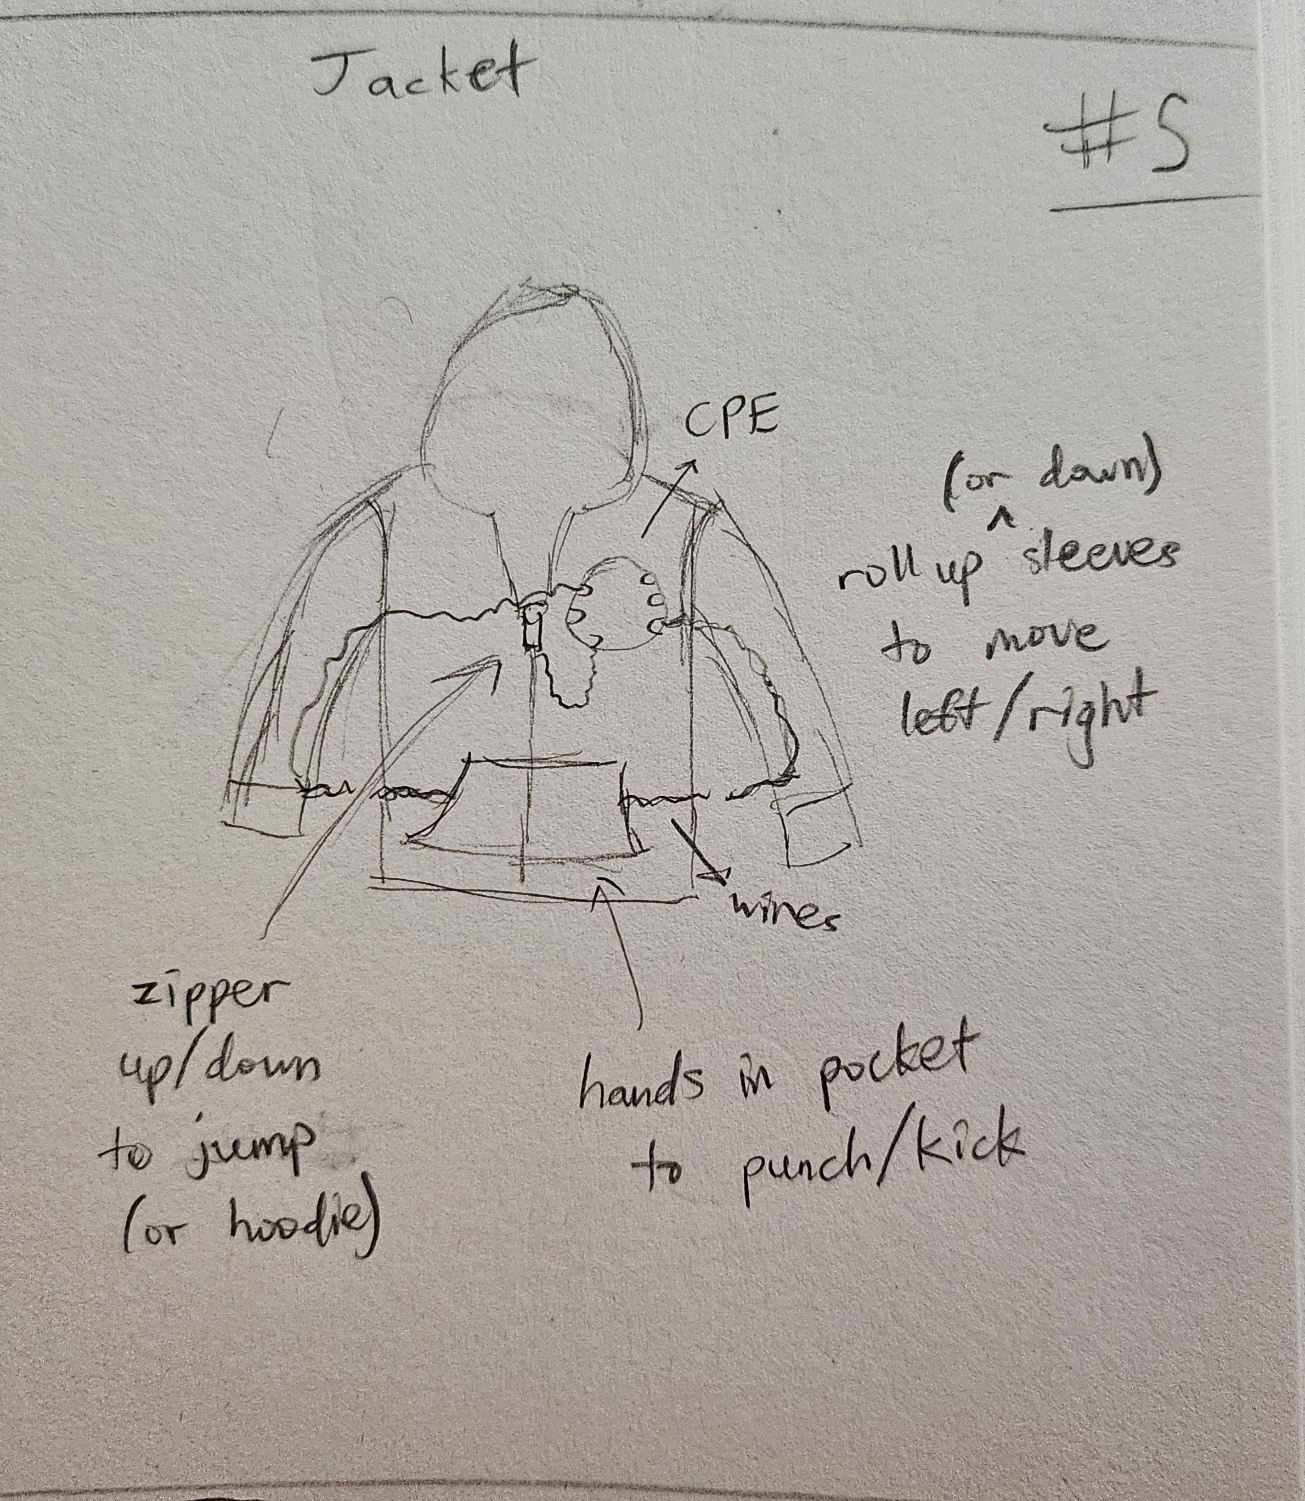 Jacket
#5
CPE
(or down)
roll up ^ sleeves
to move
left/right
wires
zipper
up/down
to jump
(or hoodie)
hands in pocket
to punch/kick